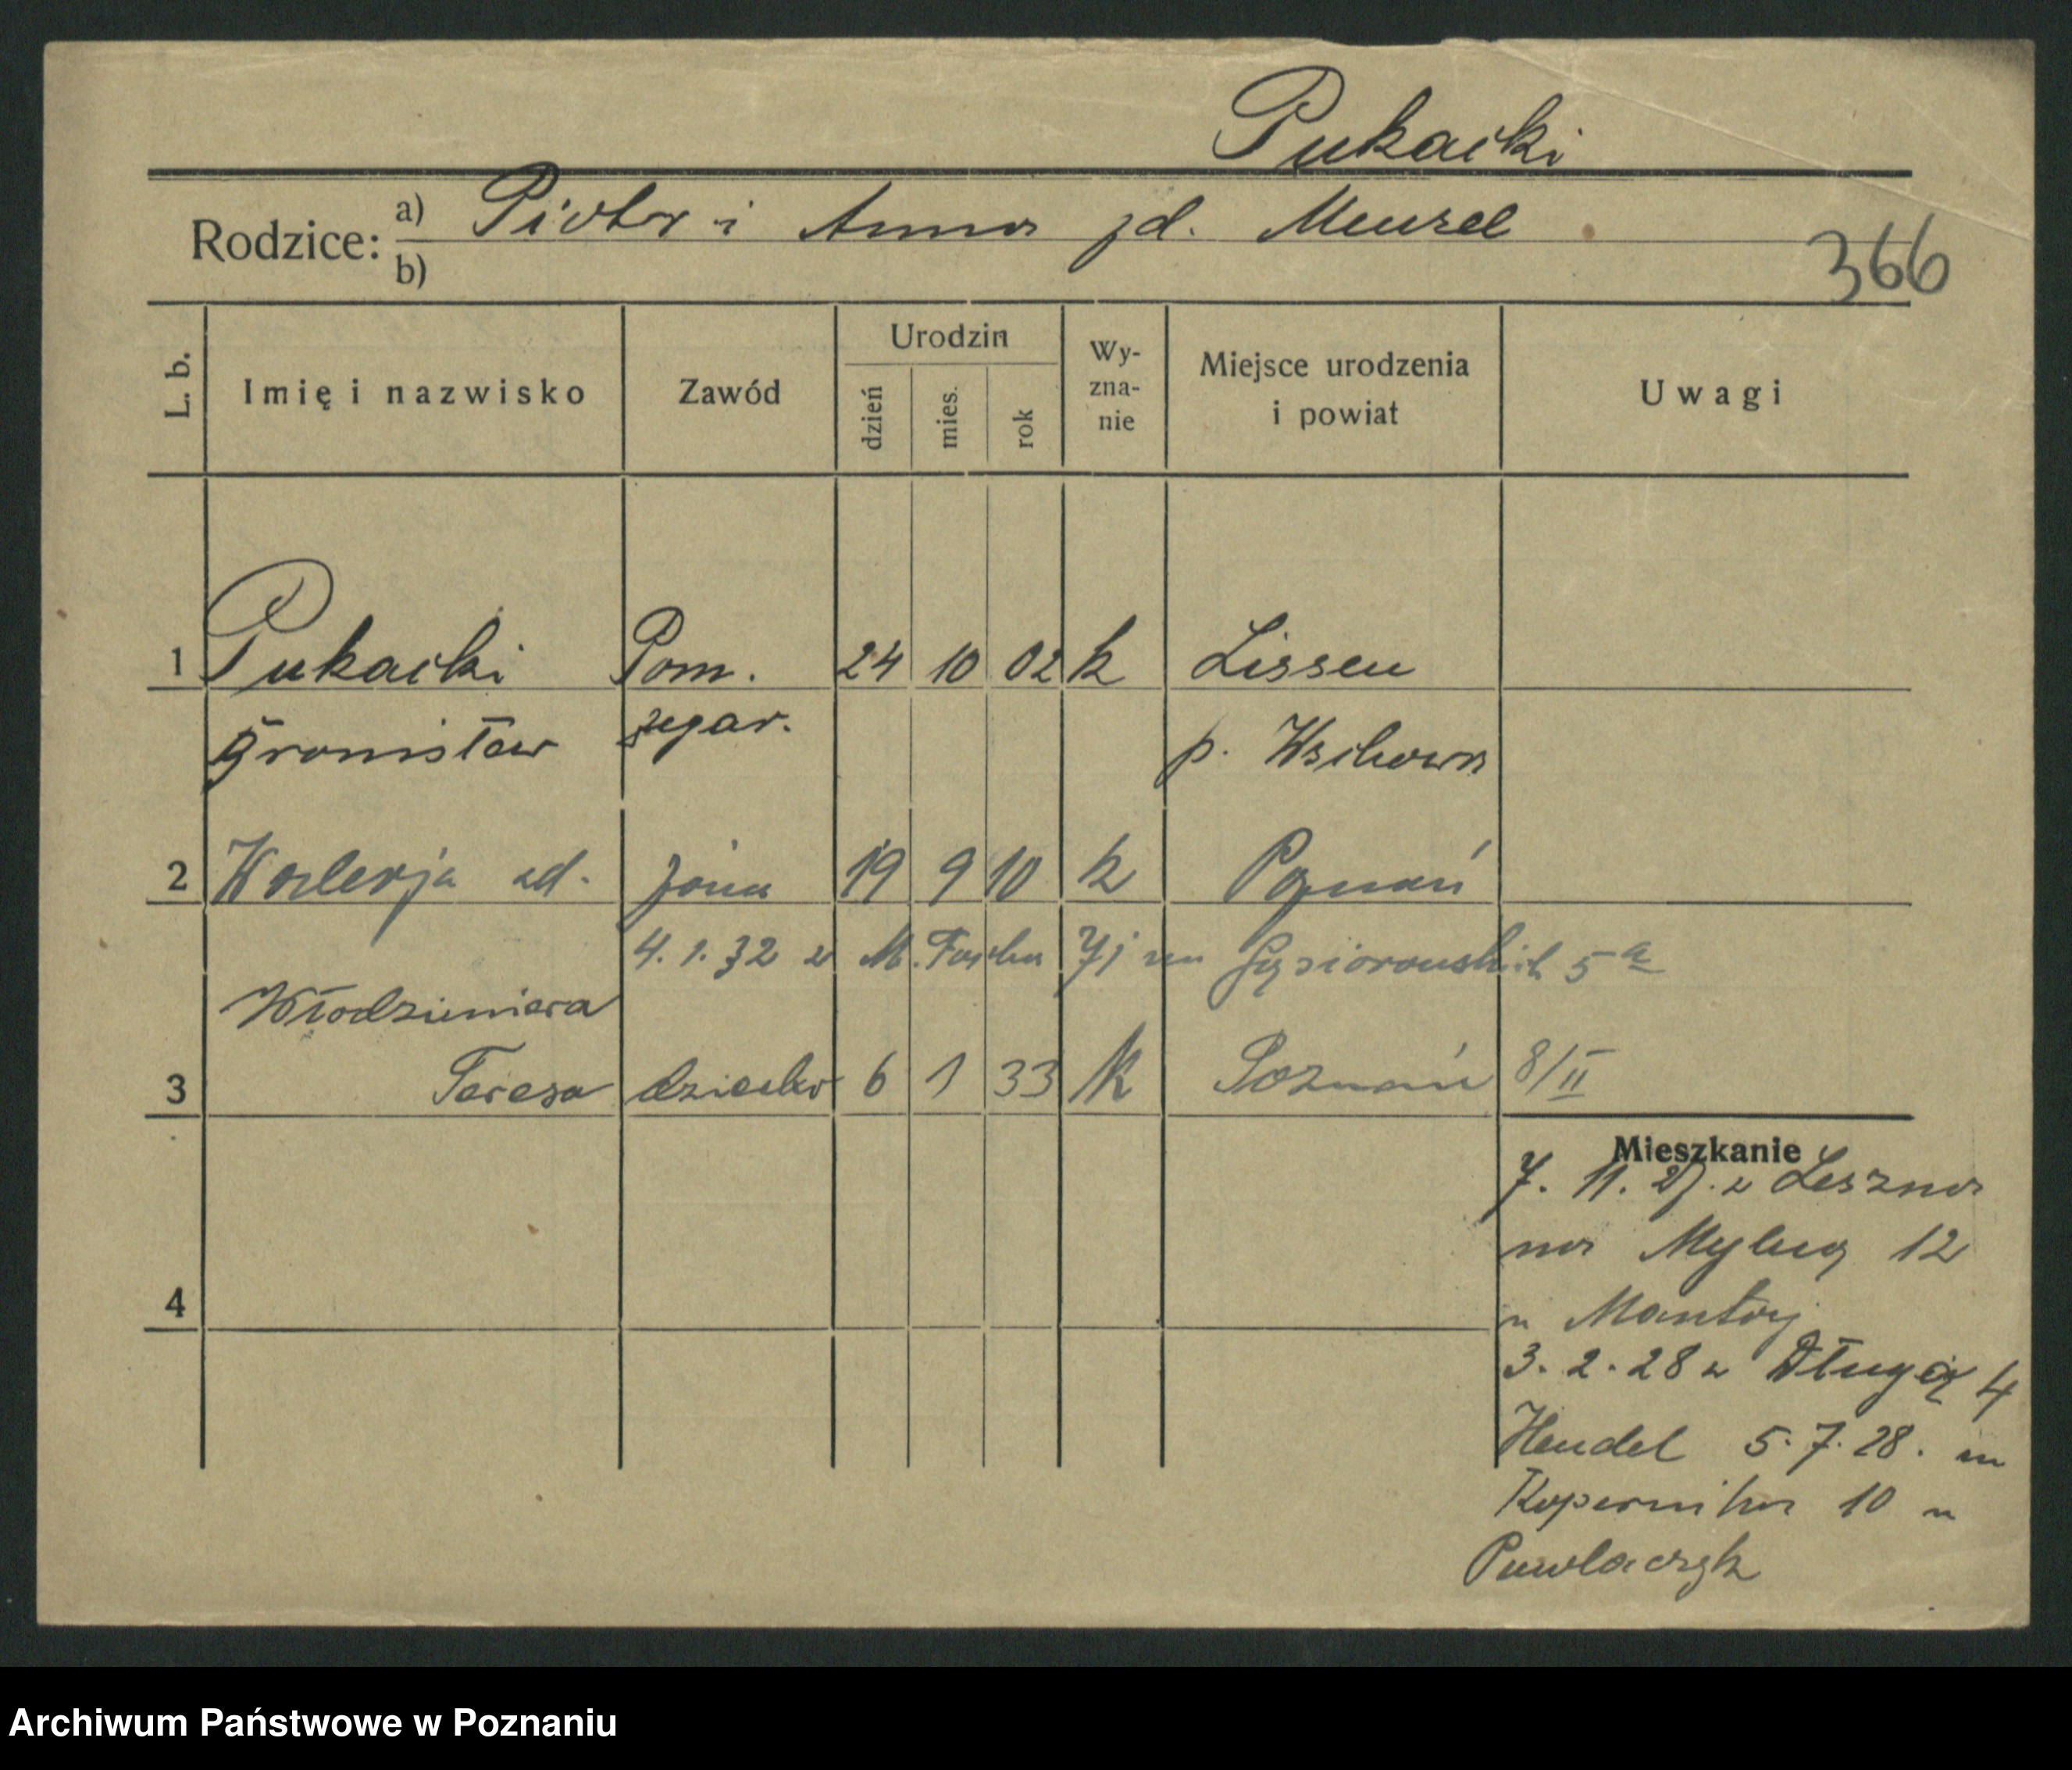 Pukacki
Rodzice: a) Piotr i Anna zd. Menzel
b)
366
L. b.
Imię i nazwisko
Zawód
Urodzin
dzień
mies.
rok
Wy-
zna-
nie
Miejsce urodzenia
i powiat
Uwagi
1 Pukacki Pom. 24 10 02 k Lissen
Bronisław zegar. p. Wschowa
2 Walerja zd. żona 19 9 10 k Poznań
4. 1. 32 z M. Focha 71 na Gąsiorowskich 5a
Włodzimiera
3 Teresa dziecko 6 1 33 k Poznań 8/II
Mieszkanie
7. 11. 27. z Leszna
na Mylną 12
u Mantaj
4
3. 2. 28 z Długą 4
Hendel 5. 7. 28. na
Kopernika 10 u
Pawlaczyk
Archiwum Państwowe w Poznaniu